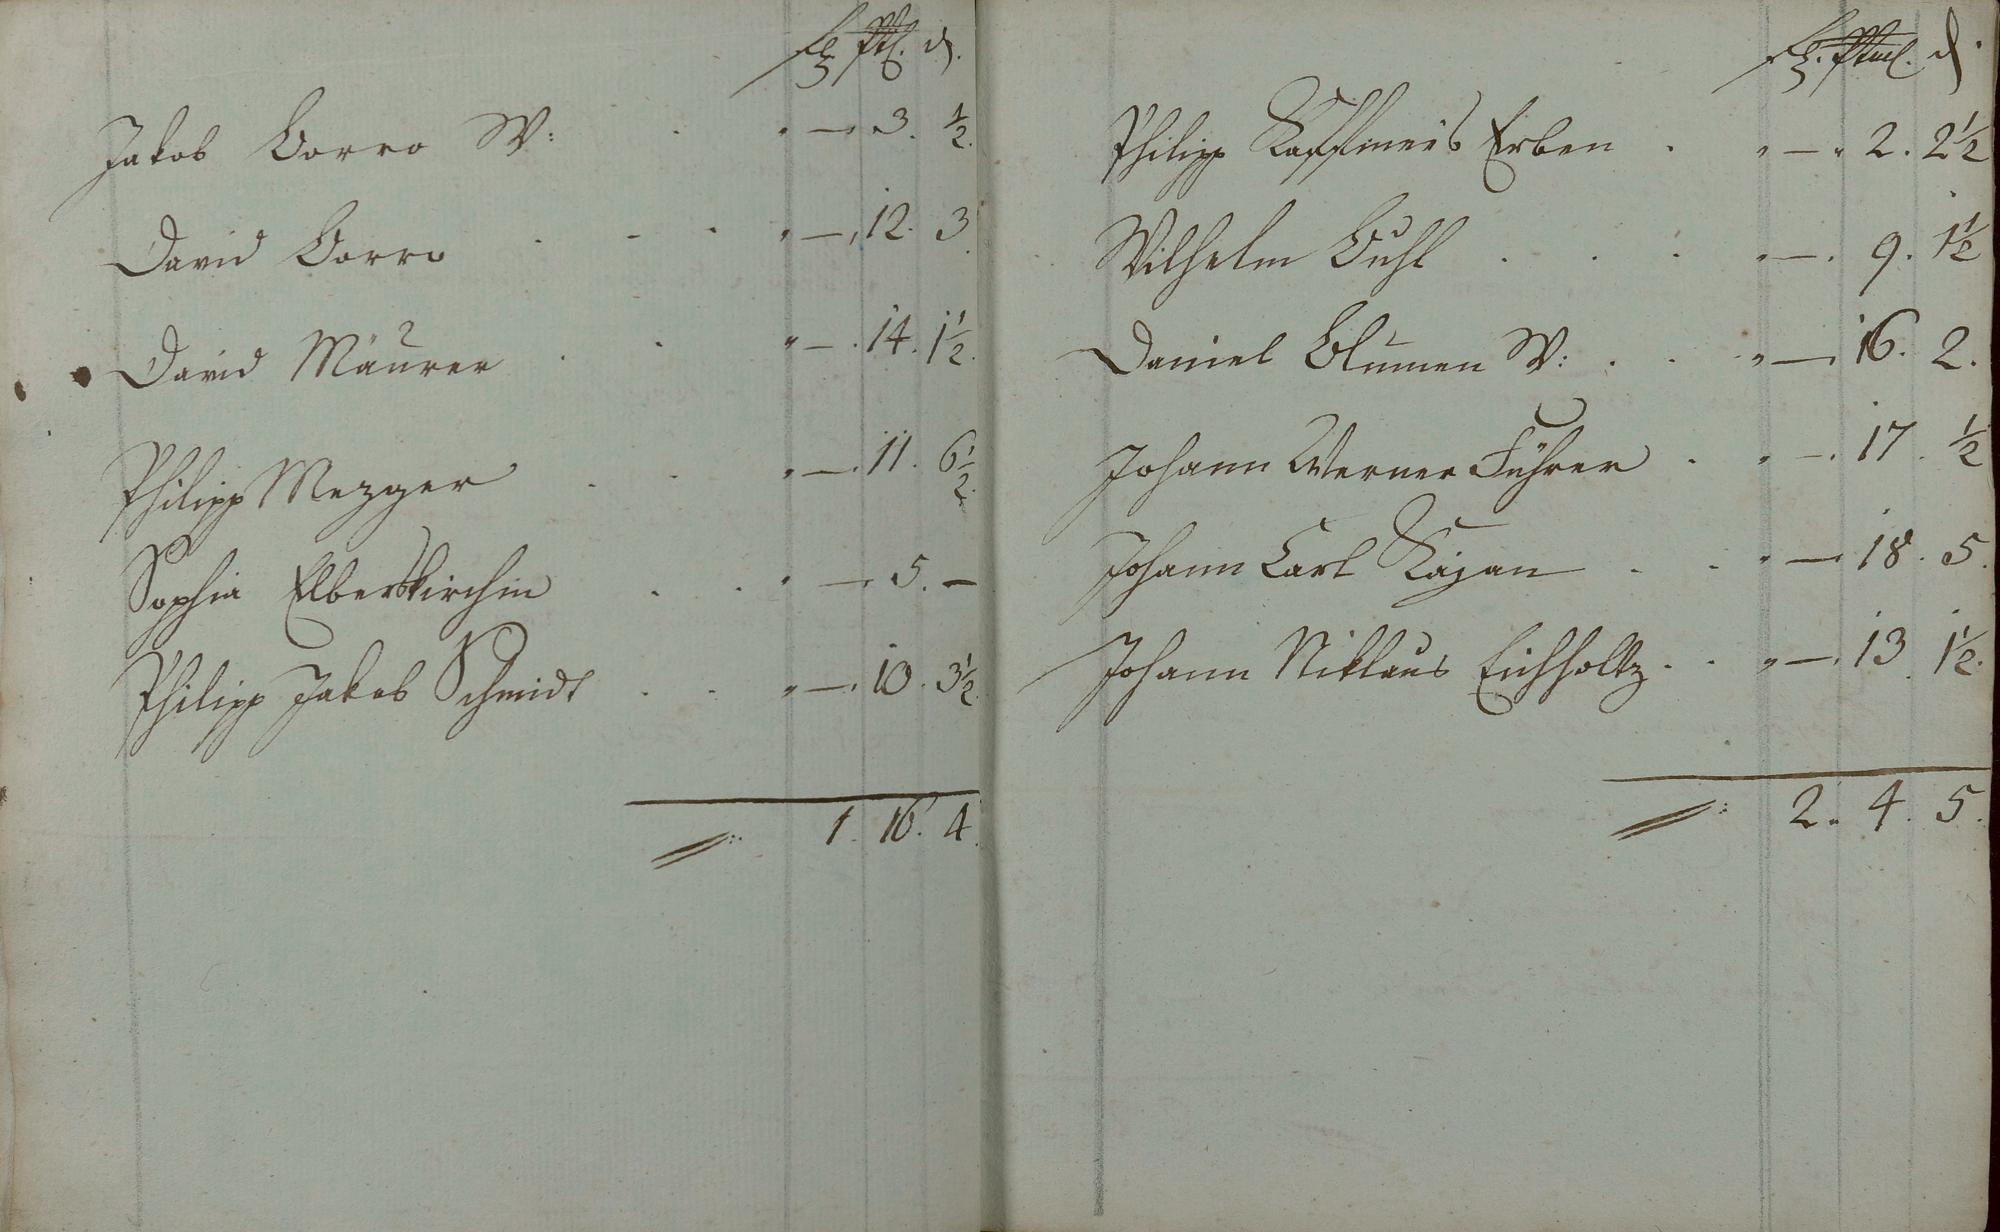 Jakob Borro W: „ — 3. ½.
David Borro „ — 12. 3
David Maurer „ — 14. 1½.
Philipp Mezger „ — 11. 6½.
Sophia Elberskirchin „ — 5. —
Philipp Jakob Schmidt „ — 10. 3½.
1. 16. 4.
Philipp Erben „ — 2. 2½
Wilhelm Buhl „ — 9. 1½
Daniel Blumen W: „ — 16. 2.
Johann Werner Führer „ — 17. ½
Johann Carl „ — 18. 5.
Johann Niklaus Eichholtz „ — 13. 1½.
2. 4. 5.